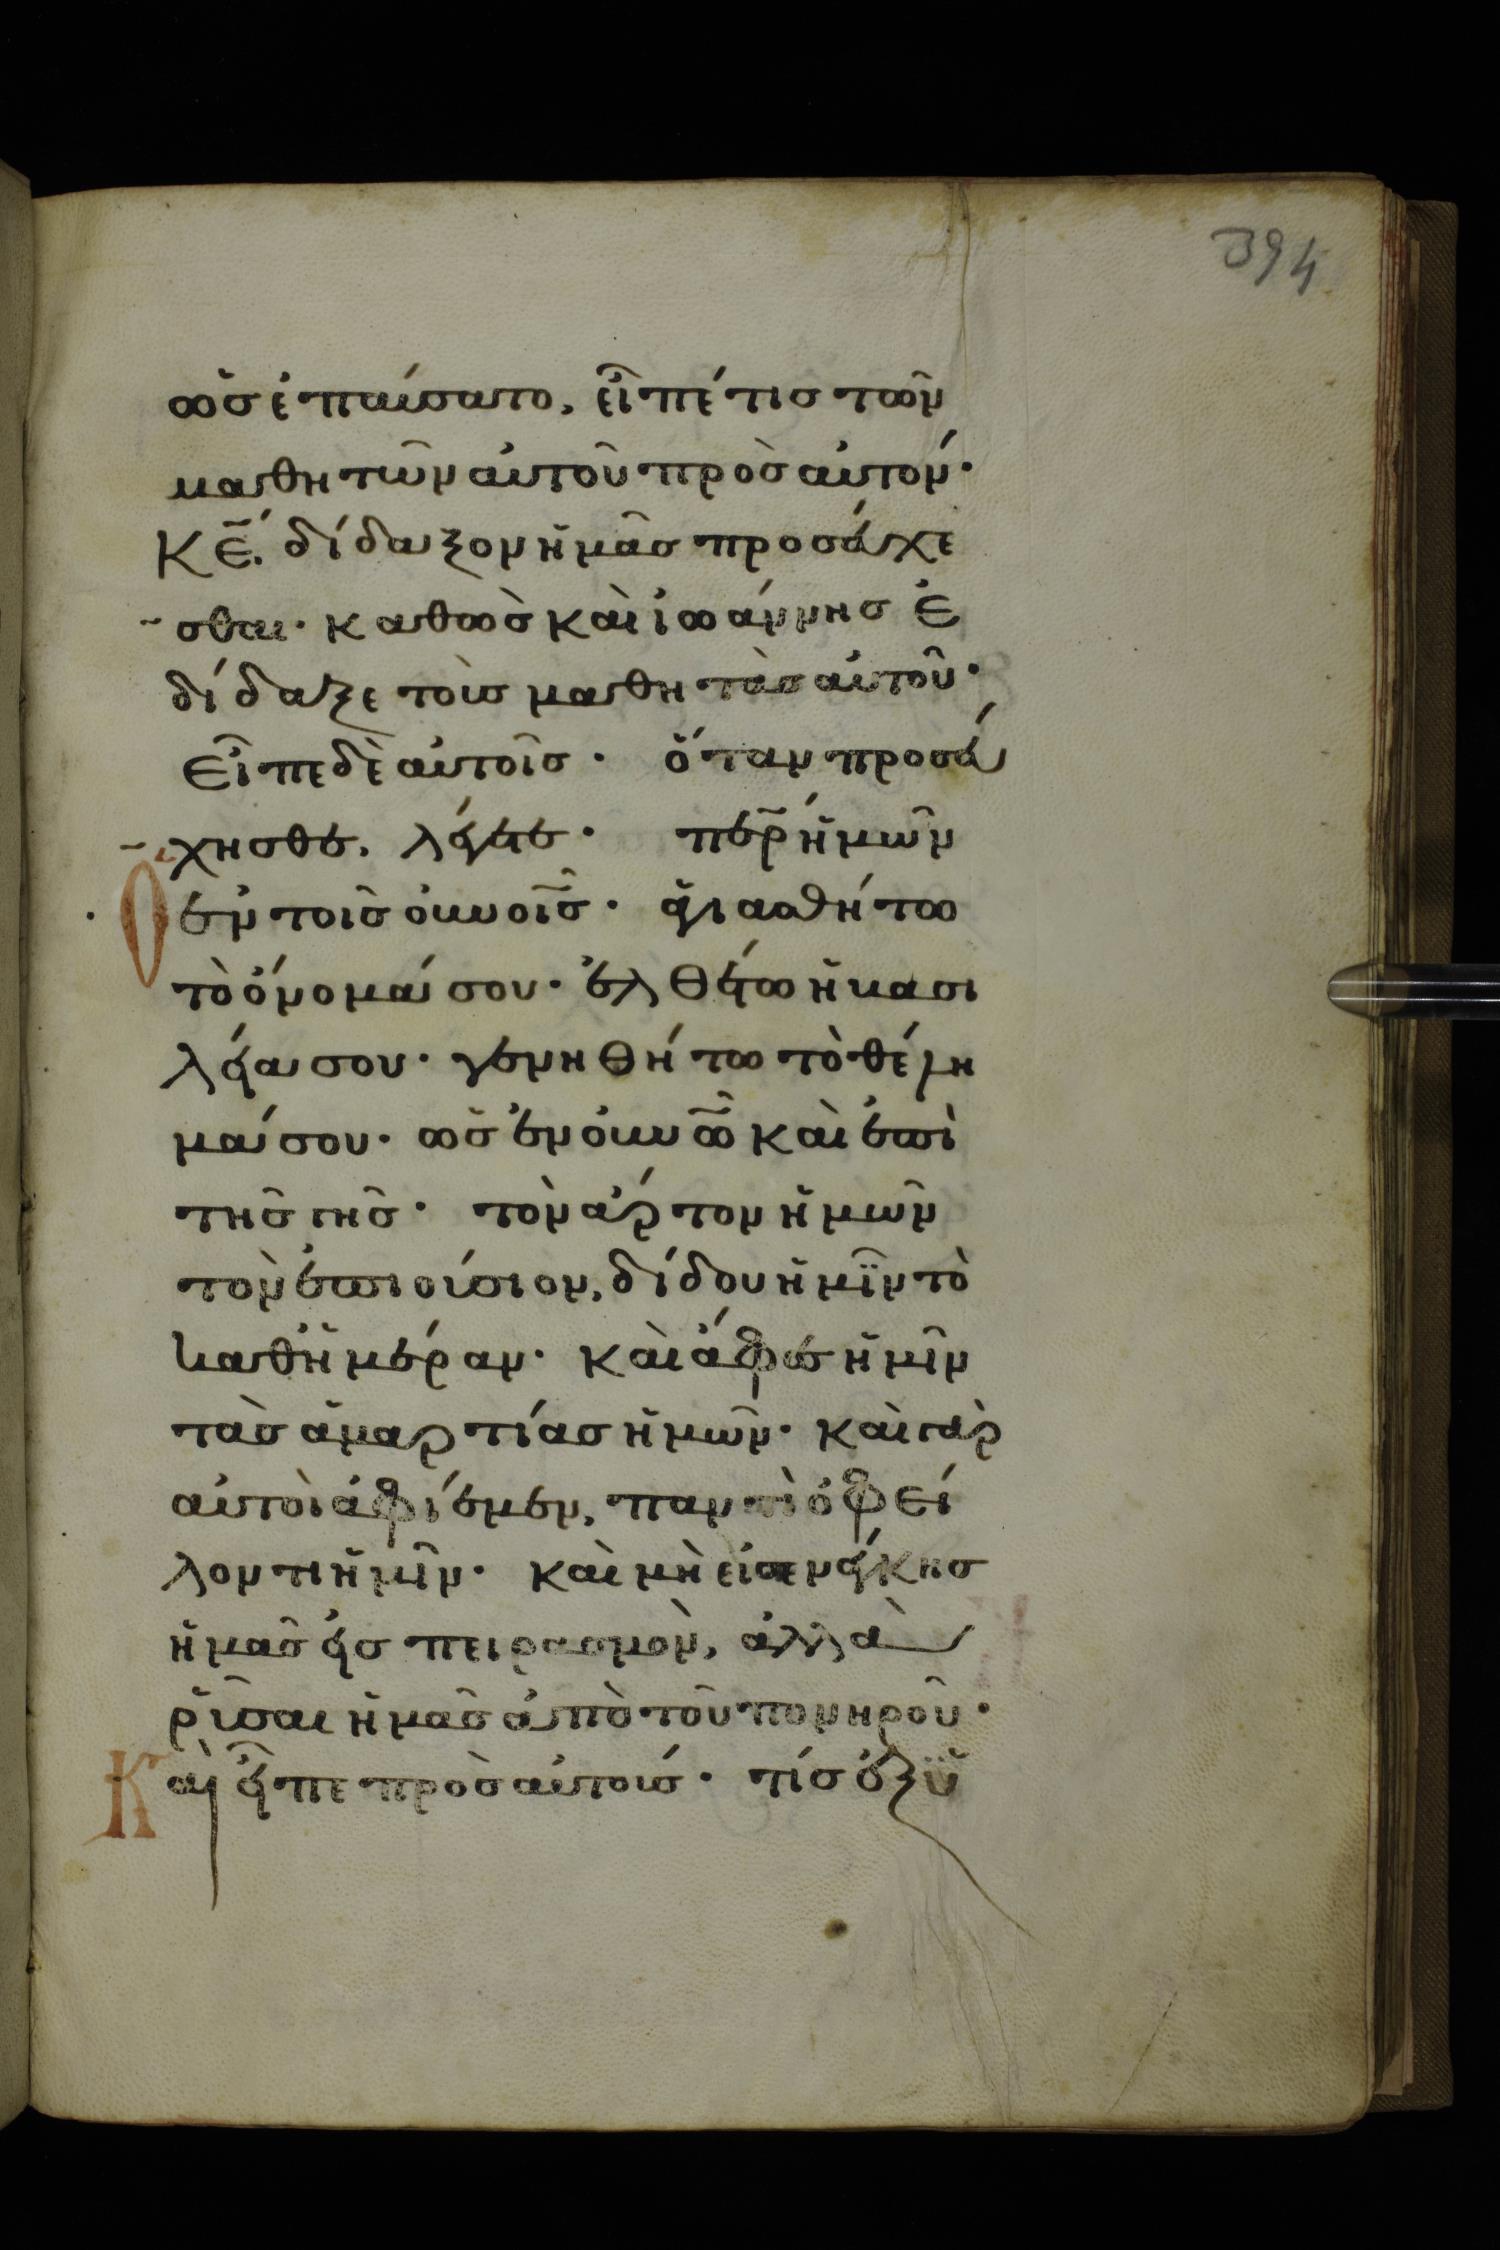 394
ὡς ἐπαύσατο, εἶπέ τις τῶν
μαθητῶν αὐτοῦ πρὸς αὐτόν·
Κ̅Ε̅, δίδαξον ἡμᾶς προσεύχε
σθαι· καθὼς καὶ ἰωάννης ἐ
δίδαξε τοὺς μαθητὰς αὐτοῦ·
εἶπε δὲ αὐτοῖς· ὅταν προσεύ
χησθε, λέγετε· π̅ε̅ρ̅ ἡμῶν
Ὁ ἐν τοῖς ο̅υ̅ν̅ο̅ι̅ς̅· ἁγιασθήτω
τὸ ὄνομά σου· ἐλθέτω ἡ βασι
λεία σου· γενηθήτω τὸ θέλη
μά σου· ὡς ἐν ο̅υ̅ν̅ω̅ καὶ ἐπὶ
τῆς γῆς· τὸν ἄρτον ἡμῶν
τὸν ἐπιούσιον, δίδου ἡμῖν τὸ
καθ' ἡμέραν· καὶ ἄφες ἡμῖν
τὰς ἁμαρτίας ἡμῶν· καὶ γὰρ
αὐτοὶ ἀφίεμεν, παντὶ ὀφεί
λοντι ἡμῖν· καὶ μὴ εἰσενέγκης
ἡμᾶς εἰς πειρασμὸν, ἀλλὰ
ῥῦσαι ἡμᾶς ἀπὸ τοῦ πονηροῦ·
Καὶ εἶπε πρὸς αὐτούς· τίς ἐξ ὑ